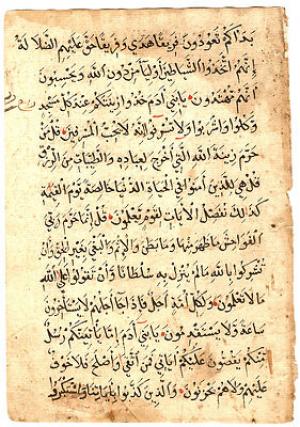 بدأكم تعودون فريقا هدى وفريقا حق عليهم الضلالة
إنهم اتخذوا الشياطين أولياء من دون الله ويحسبون
أنهم مهتدون يابني آدم خذوا زينتكم عند كل مسجد
وكلوا واشربوا ولا تسرفوا إنه لا يحب المسرفين قل من
حرم زينة الله التي أخرج لعباده والطيبات من الرزق
قل هي للذين آمنوا في الحياة الدنيا خالصة يوم القيمة
كذلك نفصل الآيات لقوم يعلمون قل إنما حرم ربي
الفواحش ما ظهر منها وما بطن والإثم والبغي بغير الحق وأن
تشركوا بالله ما لم ينزل به سلطانا وأن تقولوا على الله
ما لا تعلمون ولكل أمة أجل فإذا جاء أجلهم لا يستأخرون
ساعة ولا يستقدمون يابني آدم إما يأتينكم رسل
منكم يقصون عليكم آياتي فمن اتقى وأصلح فلا خوف
عليهم ولا هم يحزنون والذين كذبوا بآياتنا واستكبروا